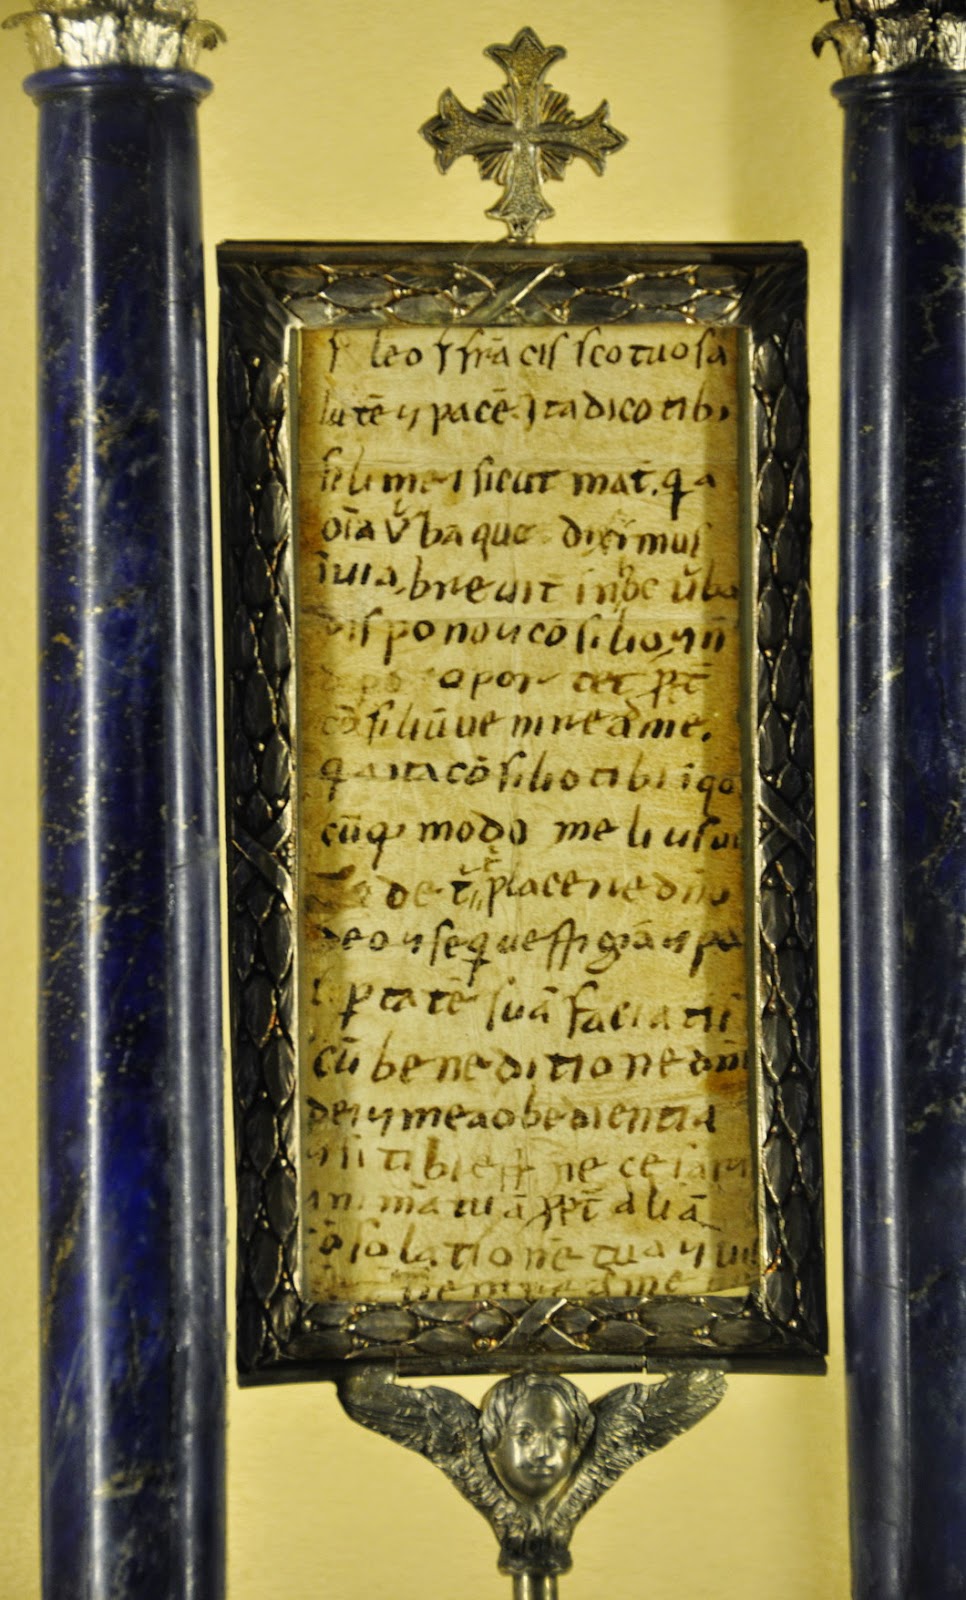 f leo f francis ssco tuo sa
lutē ⁊ pacē. Ita dico tibi
fili mei sicut mat. q a
oīa v̄ba que diximus
ī uia breuit̄ in hoc v̄ba
dispono ⁊ cōsilio ⁊ ii
oportet ppt̄
cōsiliū uenire ad me.
q a ita cōsilio tibi ī qo
cūq modo melius ui
de t̄ placere dn̄o
deo ⁊ seq uestigiā ⁊ pau
ptatē suā faciatis
cū beneditione dn̄i
dei ⁊ mea obedientia
⁊ si tibi ē neceſariū
animā tuā ppt̄ aliā
cōsolationē tuā ⁊ uis
uenire ad me